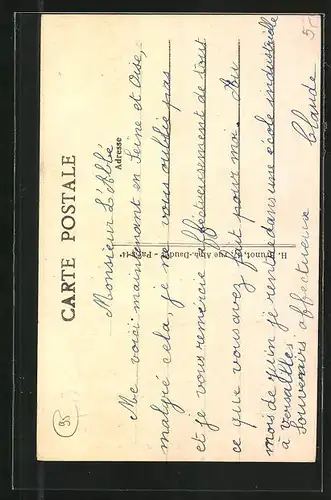 CARTE POSTALE
Adresse
Monsieur L'Abbé
Me voici maintenant en Seine et Oise,
malgré cela, je ne vous oublie pas
et je vous remercie affectueusement de tout
ce que vous avez fait pour moi. Au
mois de juin je rentre dans une école industrielle
à Versailles
Souvenirs affectueux
Claude
H. Brunot, rue Alph.-Daudet - Paris-14
95
5